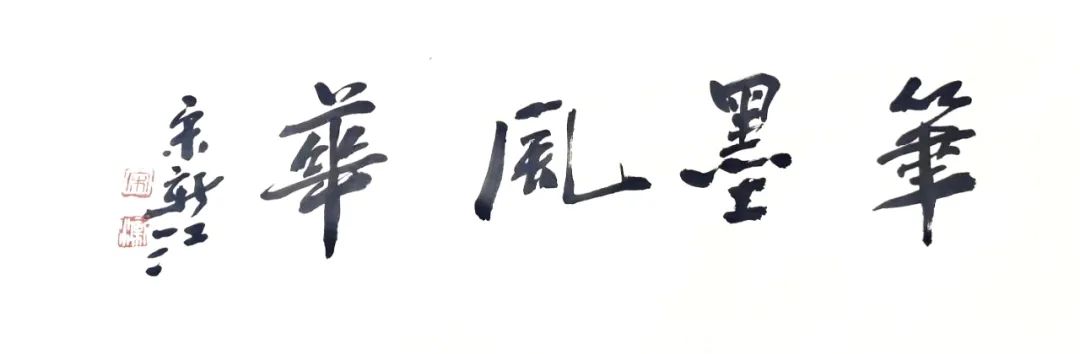 筆墨風華
宋新江